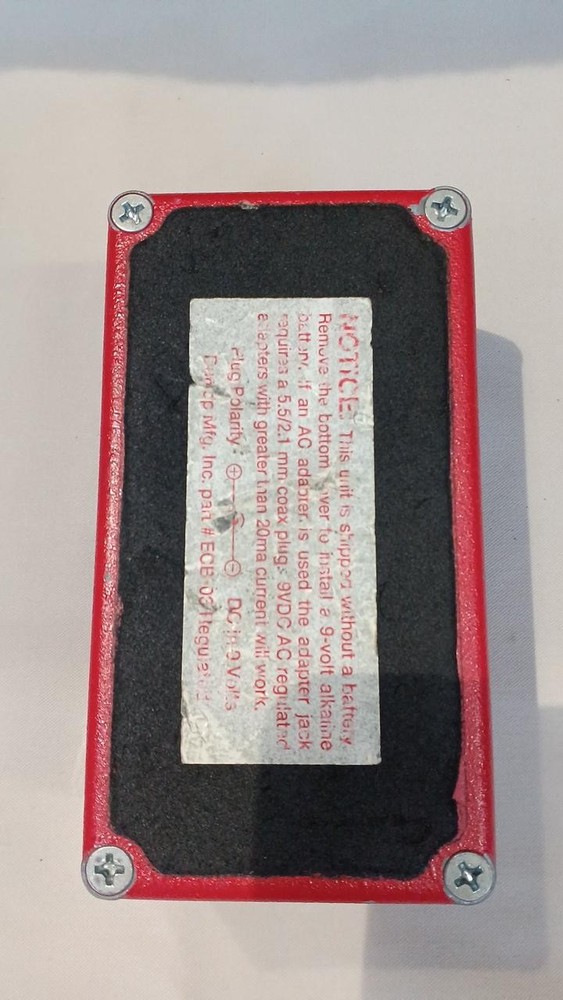 NOTICE: This unit is shipped without a battery.
Remove the bottom cover to install a 9-volt alkaline
battery. If an AC adapter is used the adapter jack
requires a 5.5/2.1 mm coax plug - 9VDC AC regulated
adapters with greater than 20ma current will work.
Plug Polarity: ⊕ ⊖ DC in 9 Volts
Dunlop Mfg. Inc. part # Regulated